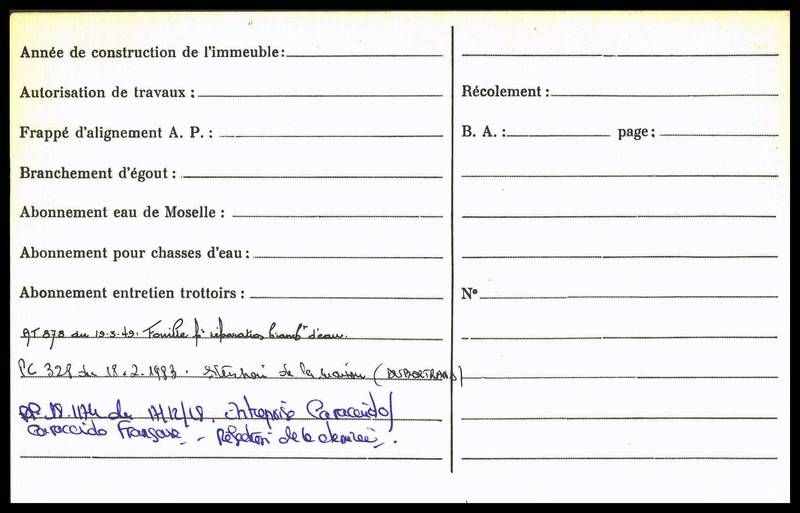 Année de construction de l'immeuble:
Autorisation de travaux :
Récolement :
Frappé d'alignement A. P. :
B. A. : page :
Branchement d'égout :
Abonnement eau de Moselle :
Abonnement pour chasses d'eau :
Abonnement entretien trottoirs :
N°
AT 878 du 19.5.49. Fouille pr réparation bramt d'eau.
PC 328 du 18.2.1983. extension de la maison (DUBERTRAND)
DP 18.1174 du 17/12/18. entreprise Caraccido/
Caraccido Françoise - Réfection de la cheminée.